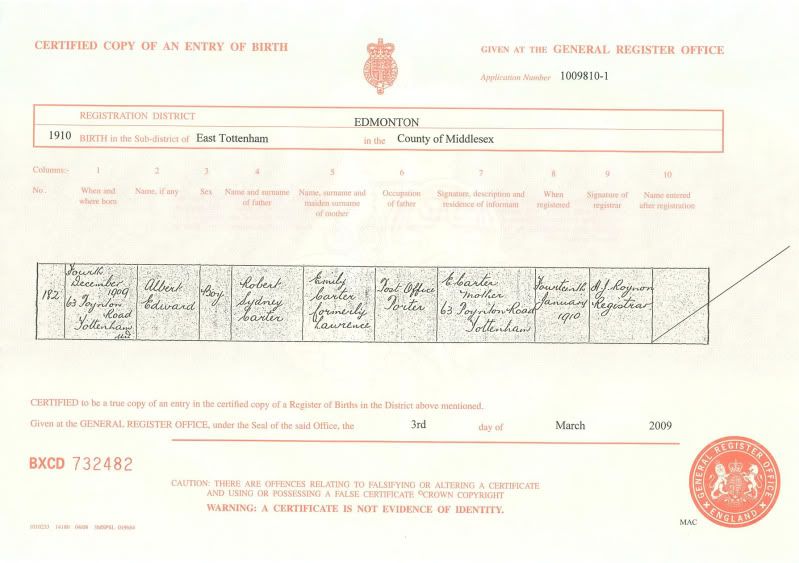 CERTIFIED COPY OF AN ENTRY OF BIRTH
GIVEN AT THE GENERAL REGISTER OFFICE
Application Number 1009810-1
REGISTRATION DISTRICT EDMONTON
1910 BIRTH in the Sub-district of East Tottenham in the County of Middlesex
Columns:- 1 2 3 4 5 6 7 8 9 10
No. When and where born Name, if any Sex Name and surname of father Name, surname and maiden surname of mother Occupation of father Signature, description and residence of informant When registered Signature of registrar Name entered after registration
182 Fourth December 1909 63 Poynton Road Tottenham Albert Edward Boy Robert Sydney Carter Emily Carter formerly Lawrence Post Office Porter E Carter Mother 63 Poynton Road Tottenham Fourteenth January 1910 A.J. Roynon Registrar
CERTIFIED to be a true copy of an entry in the certified copy of a Register of Births in the District above mentioned.
Given at the GENERAL REGISTER OFFICE, under the Seal of the said Office, the 3rd day of March 2009
BXCD 732482
CAUTION: THERE ARE OFFENCES RELATING TO FALSIFYING OR ALTERING A CERTIFICATE
AND USING OR POSSESSING A FALSE CERTIFICATE ©CROWN COPYRIGHT
WARNING: A CERTIFICATE IS NOT EVIDENCE OF IDENTITY.
GENERAL REGISTER OFFICE
ENGLAND
MAC